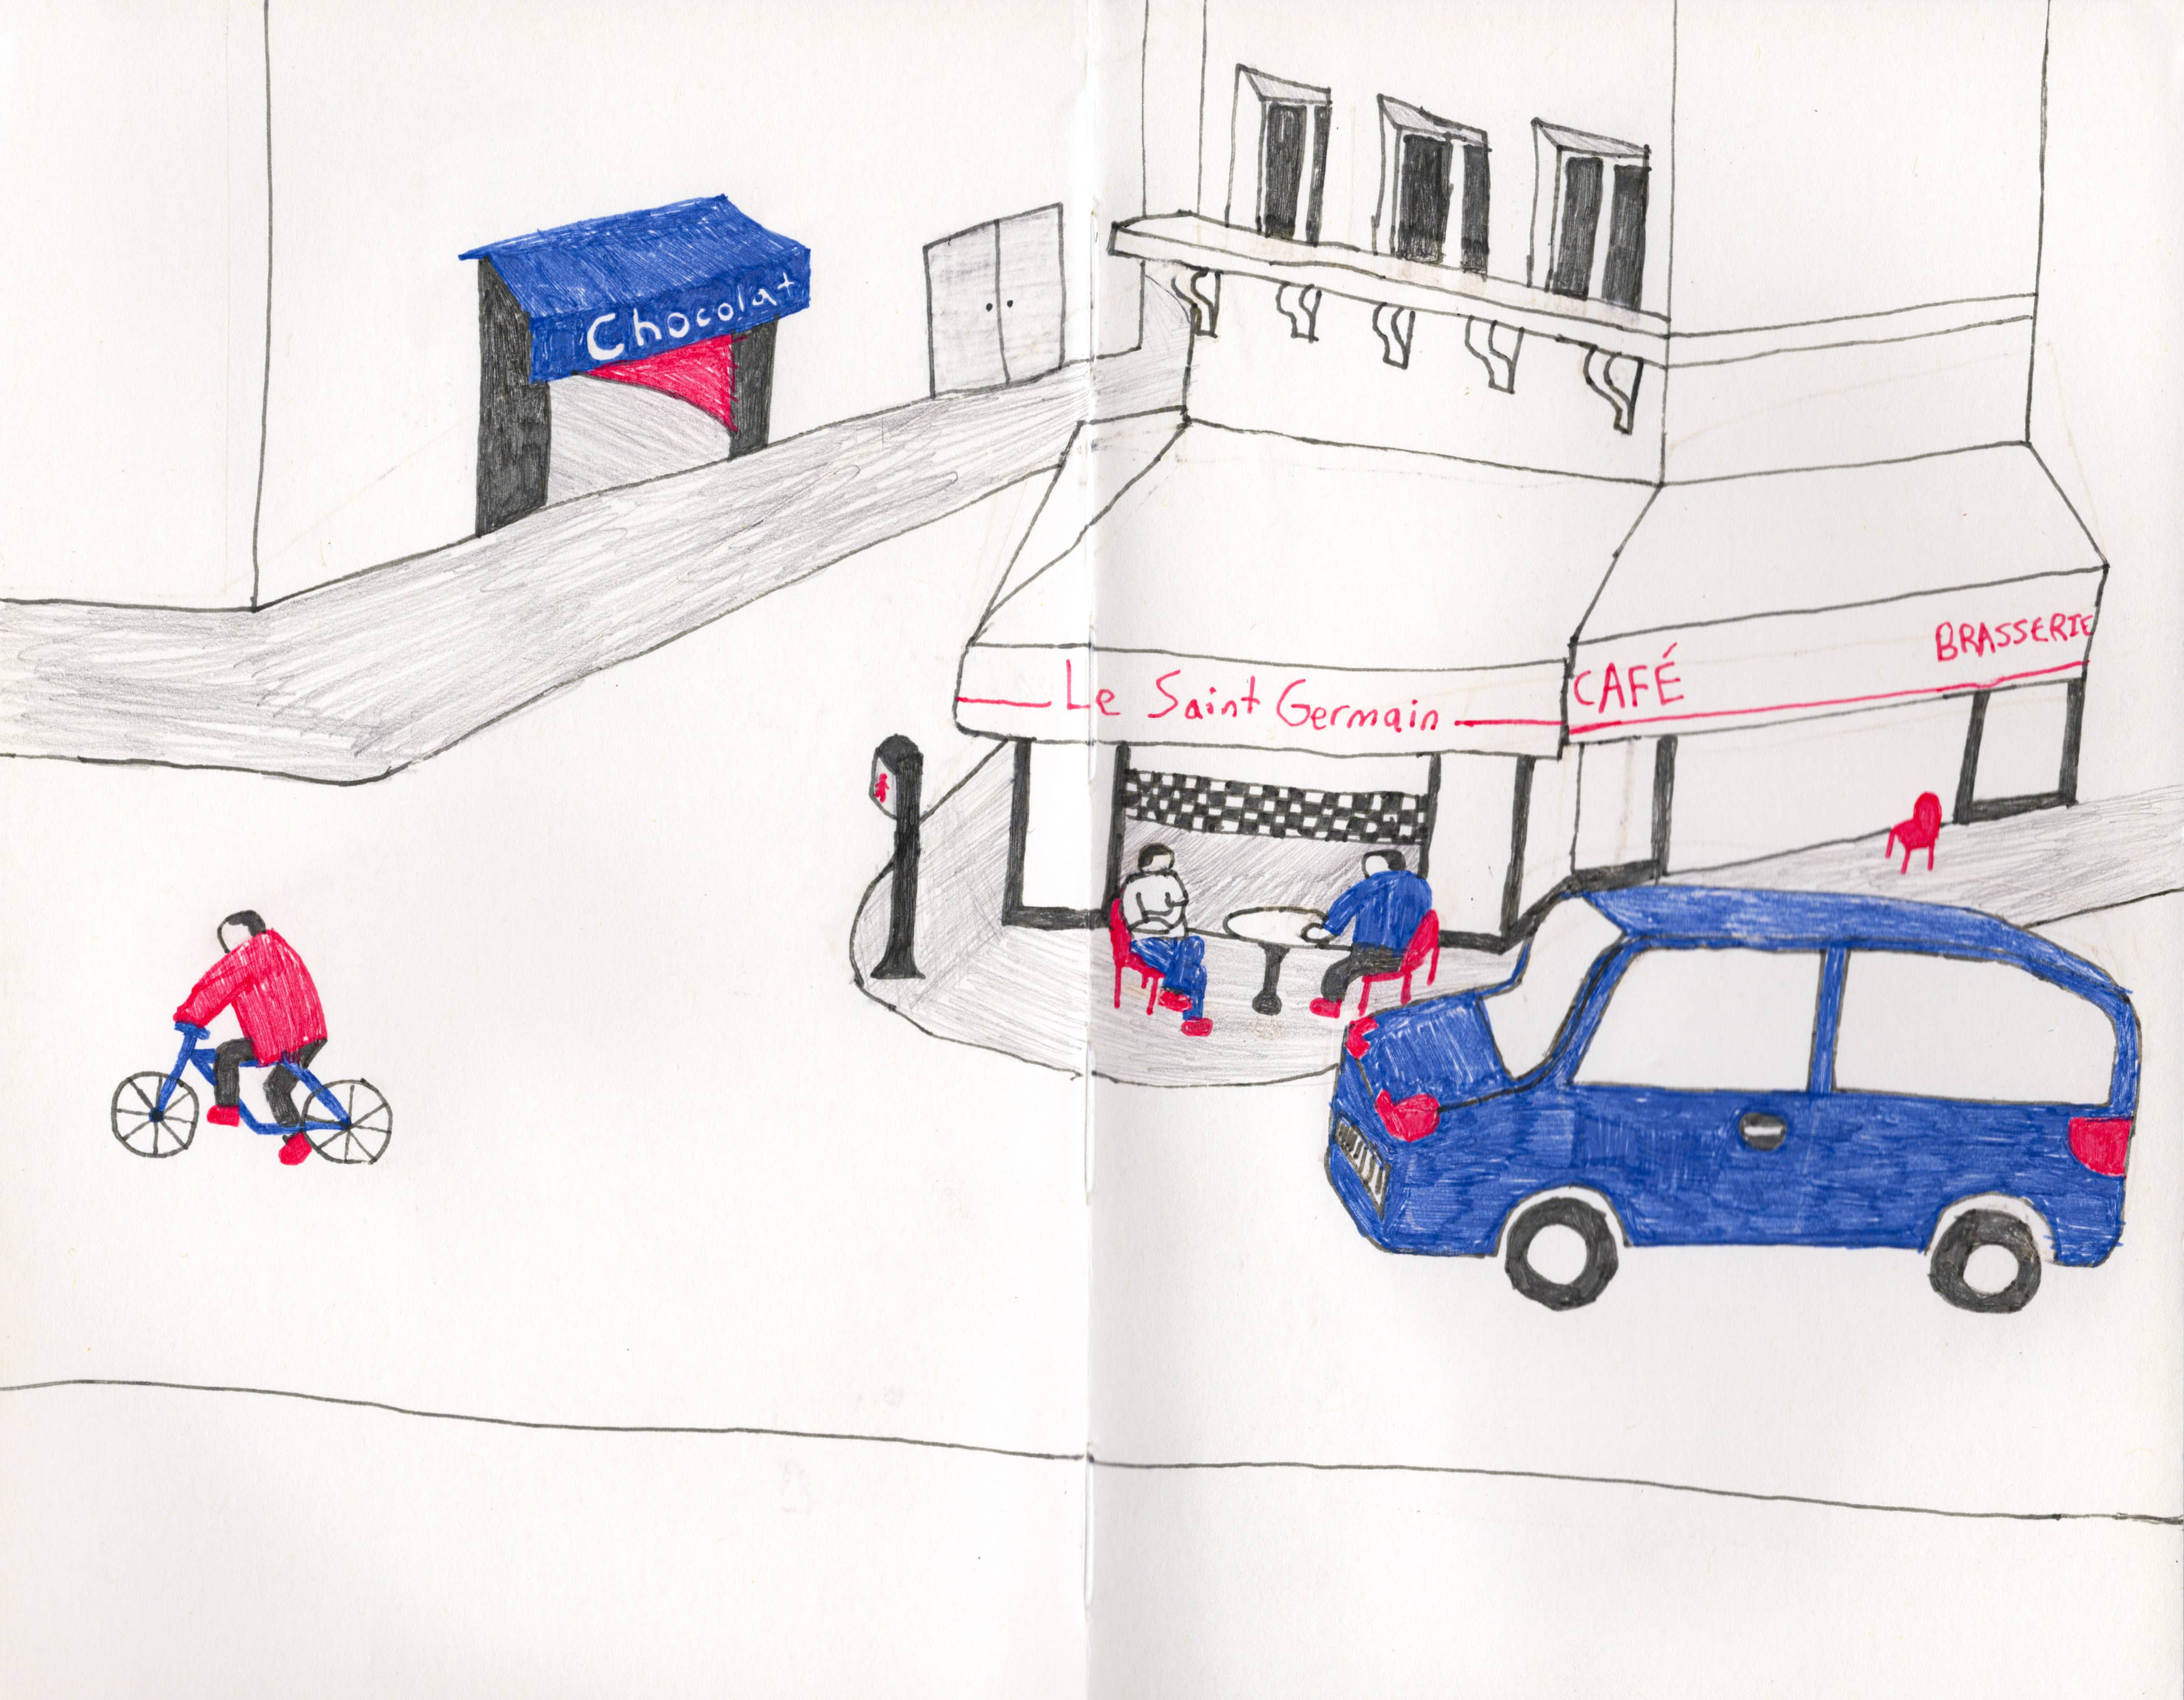 Chocolat
Le Saint Germain
CAFÉ
BRASSERIE